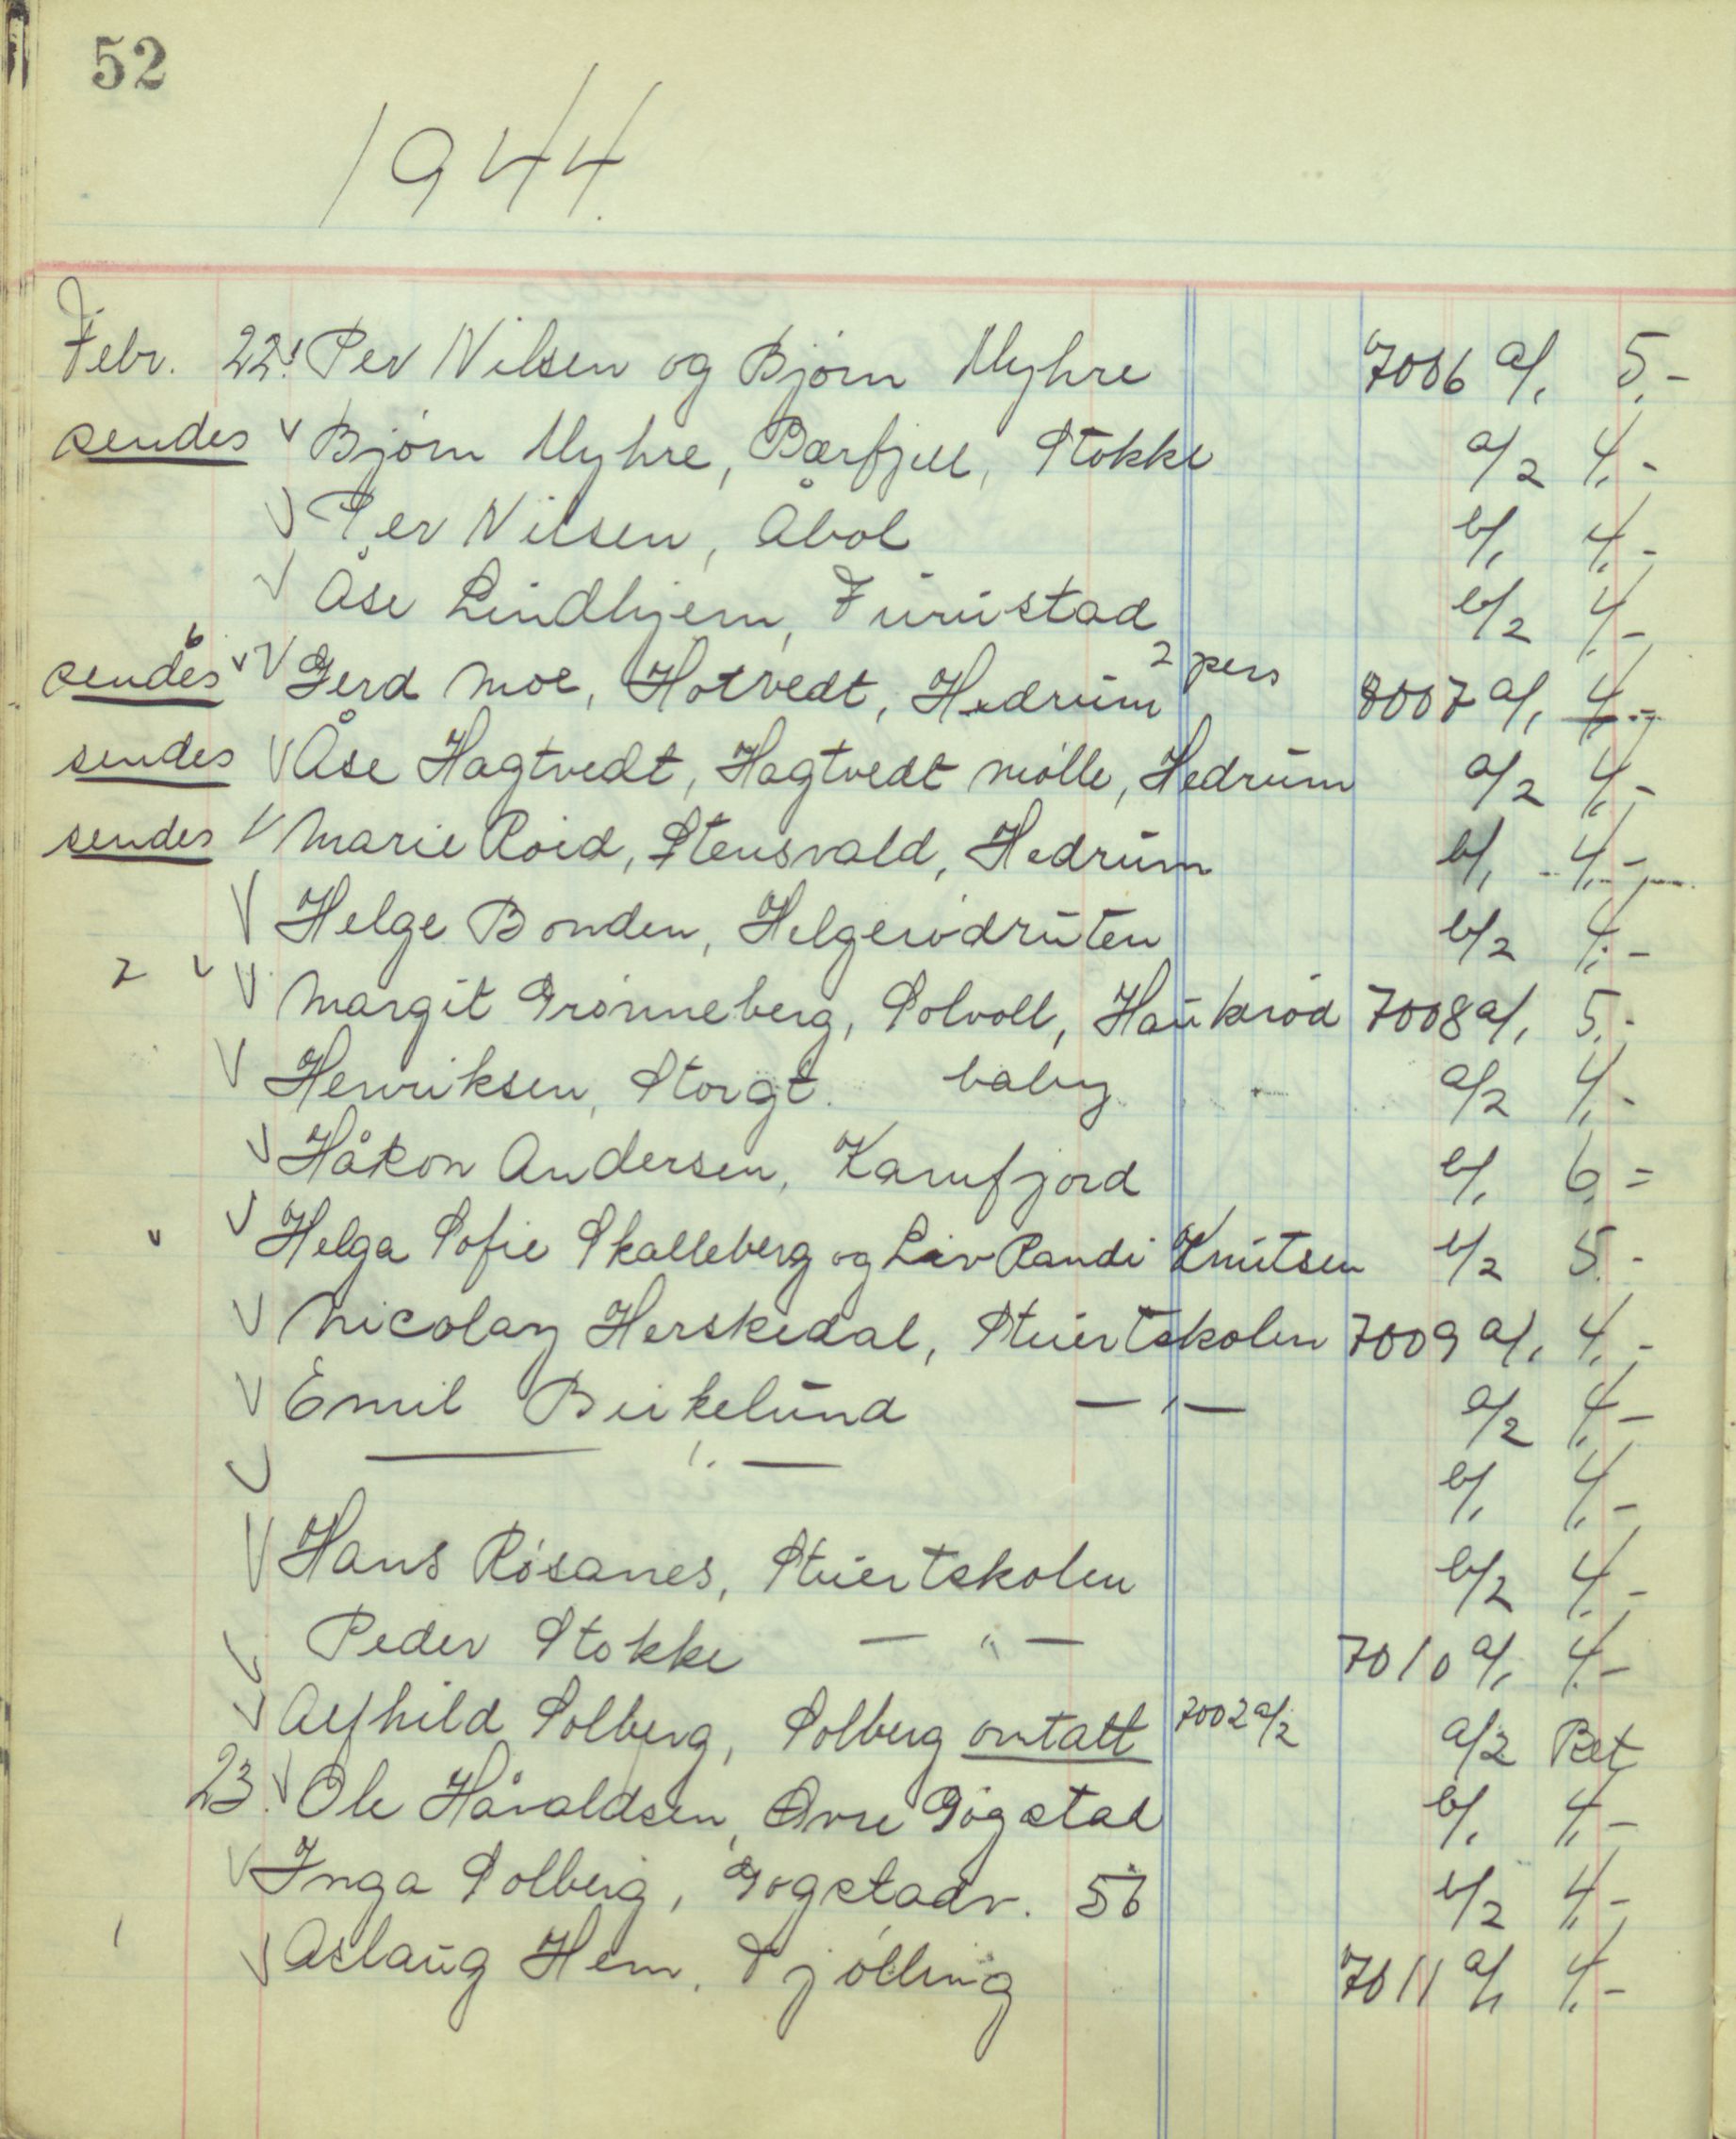 52
1944.
Febr. 22. Per Nilsen og Bjørn Myhre 7006 a/1 5.-
sendes v Bjørn Myhre, Bærfjell, Stokke a/2 4.-
v Per Nilsen, Åbol b/1 4.-
v Åse Lindhjem, Furustad b/2 4.-
6 2 pers
sendes v v Gerd Moe, Hotvedt, Hedrum 8007 a/1 4.-
sendes v Åse Hagtvedt, Hagtvedt mølle, Hedrum a/2 4.-
sendes v Marie Roid, Stensvald, Hedrum b/1 4.-
v Helge Bonden, Helgerødruten b/2 4.-
2 v v Margit Grønneberg, Solvoll, Haukerød 7008 a/1 5.-
v Henriksen, Storgt. baby a/2 4.-
v Håkon Andersen, Kamfjord b/1 6.=
v v Helga Sofie Skalleberg og Liv Randi Knutsen b/2 5.-
v Nicolay Herskedal, Stuertskolen 7009 a/1 4.-
v Emil Birkelund — " — a/2 4.-
v — " — b/1 4.-
v Hans Røsanes, Stuertskolen b/2 4.-
v Peder Stokke — " — 7010 a/1 4.-
v Alfhild Solberg, Solberg omtatt 7002 a/2 a/2 Bet
23. v Ole Håvaldsen, Øvre Gogstad b/1 4.-
v Inga Solberg, Gogstadv. 56 b/2 4.-
1 v Aslaug Hem, Tjølling 7011 a/1 4.-